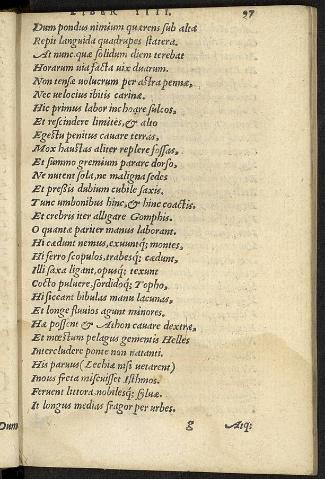 LIBER IIII. 97
Dum pondus nimium quærens sub alta
Repit languida quadrupes statera.
At nunc quæ solidum diem terebat
Horarum uia facta uix duarum.
Non tensæ uolucrum per astra pennæ,
Nec uelocius ibitis carinæ.
Hic primus labor inchoare sulcos,
Et rescindere limites, & alto
Egestu penitus cauare terras,
Mox haustas aliter replere fossas,
Et summo gremium parare dorso,
Ne nutent sola, ne maligna sedes
Et pressis dubium cubile saxis.
Tunc umbonibus hinc, & hinc coactis,
Et crebris iter alligare Gomphis.
O quantæ pariter manus laborant.
Hi cædunt nemus, exuuntq; montes,
Hi ferro scopulos, trabesq; cædunt,
Illi saxa ligant, opusq; texunt
Cocto puluere, sordidoq; Topho,
Hi siccant bibulas manu lacunas,
Et longe fluuios agunt minores.
Hæ possent & Athon cauare dextræ,
Et mœstum pelagus gementis Helles
Intercludere ponte non natanti.
His paruus (Lechiæ nisi uetarent)
Inous freta miscuisset Isthmos.
Feruent littora nobilesq; syluæ.
It longus medias fragor per urbes.
Dum g Atq;